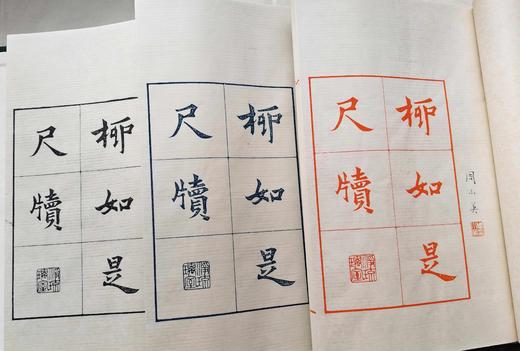 周小英
柳如是
尺牘
柳如是
尺牘
柳如是
尺牘